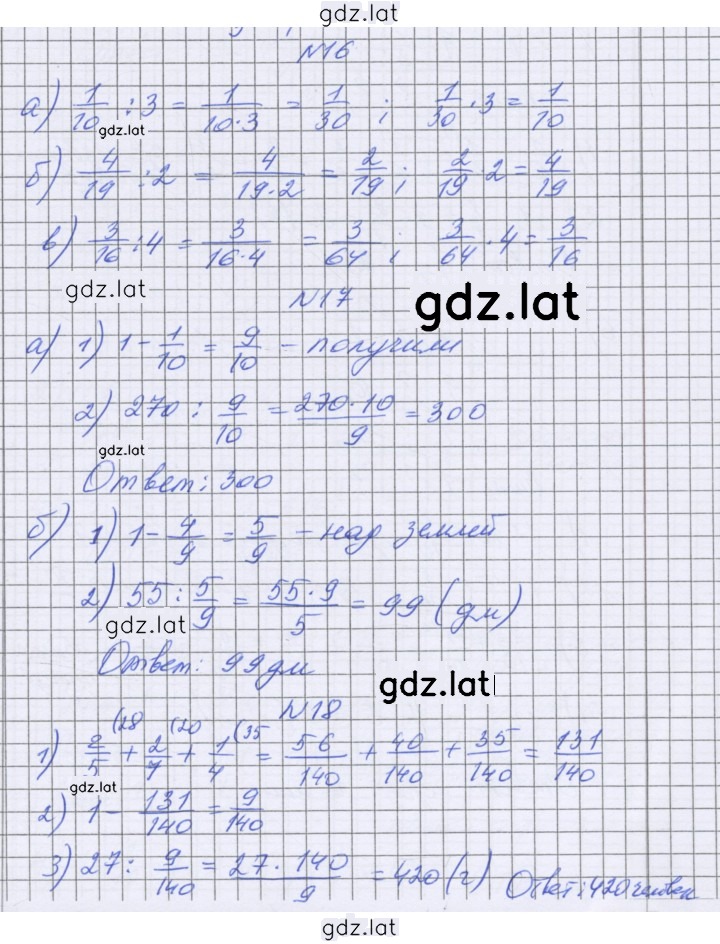 gdz.lat
N16
а) 1/10 : 3 = 1/(10·3) = 1/30 ; 1/30 · 3 = 1/10
gdz.lat
б) 4/19 : 2 = 4/(19·2) = 2/19 ; 2/19 · 2 = 4/19
в) 3/16 : 4 = 3/(16·4) = 3/64 ; 3/64 · 4 = 3/16
gdz.lat
N17
gdz.lat
а) 1) 1 - 1/10 = 9/10 - получили
2) 270 : 9/10 = (270·10)/9 = 300
gdz.lat
Ответ: 300
б) 1) 1 - 4/9 = 5/9 - над землей
2) 55 : 5/9 = (55·9)/5 = 99 (дм)
gdz.lat
Ответ: 99 дм
gdz.lat
N18
1) 2/5 (28 + 2/7 (20 + 1/4 (35 = 56/140 + 40/140 + 35/140 = 131/140
gdz.lat
2) 1 - 131/140 = 9/140
3) 27 : 9/140 = (27·140)/9 = 420 (ч) Ответ: 420 человек
gdz.lat